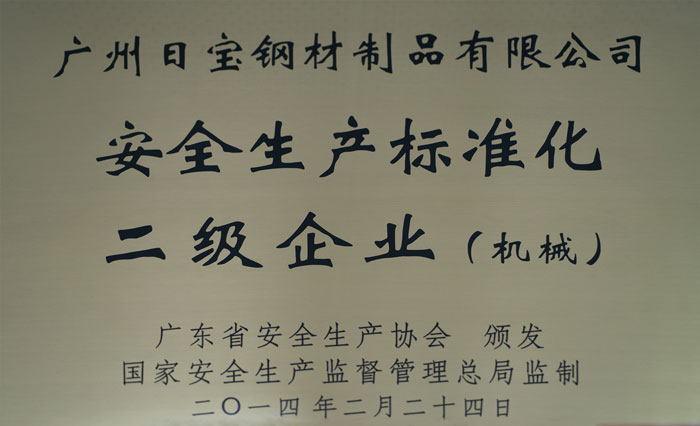 广州日宝钢材制品有限公司
安全生产标准化
二级企业（机械）
广东省安全生产协会 颁发
国家安全生产监督管理总局监制
二〇一四年二月二十四日